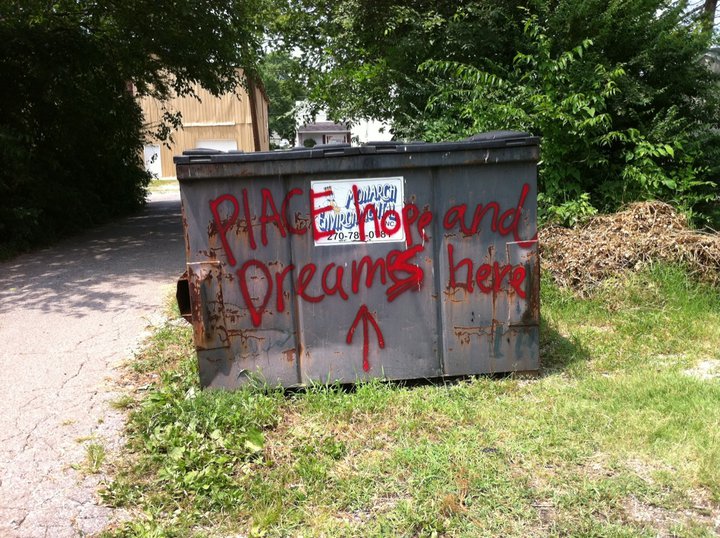 PLACE hope and
Dreams here
MONARCH
ENVIRONMENTAL